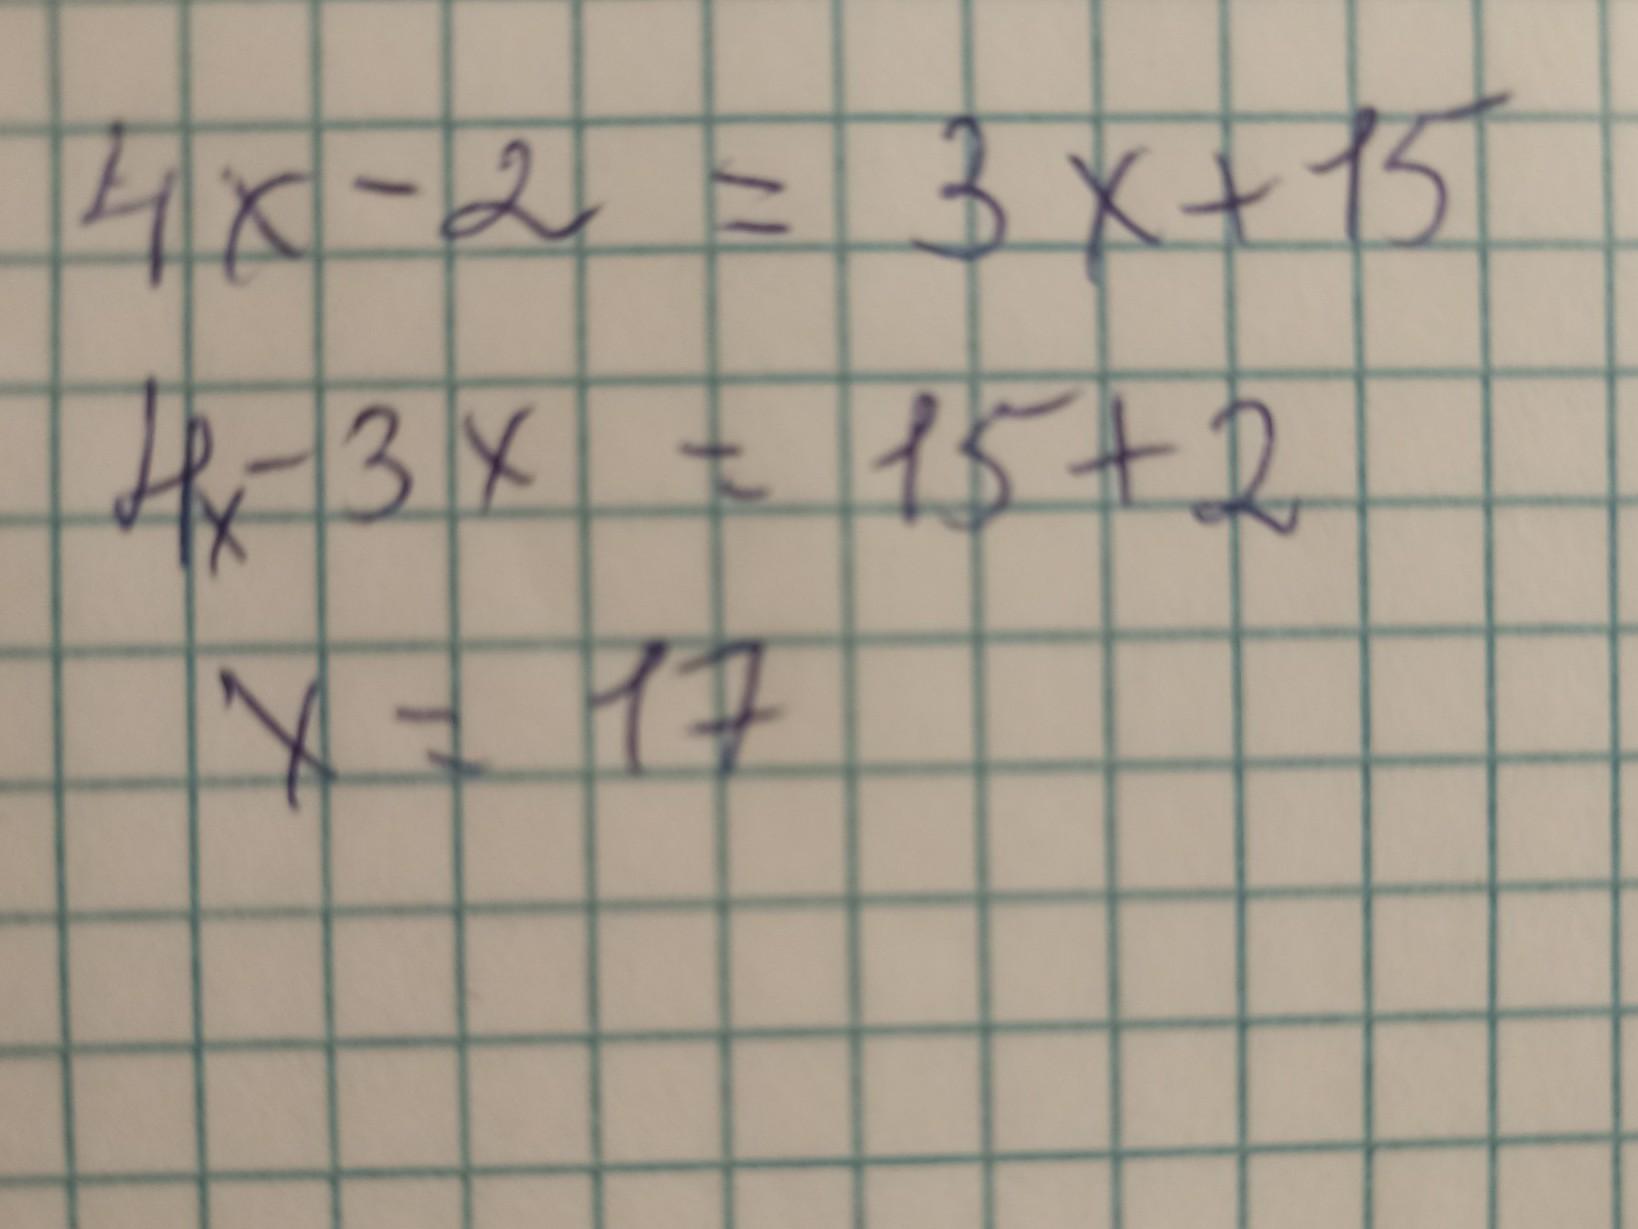 4x - 2 = 3x + 15
4x - 3x = 15 + 2
x = 17